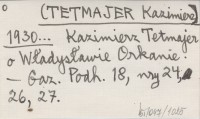 (TETMAJER Kazimierz)
1930... Kazimierz Tetmajer
o Władysławie Orkanie.
— Gaz. Podh. 18, nry 24,
26, 27.